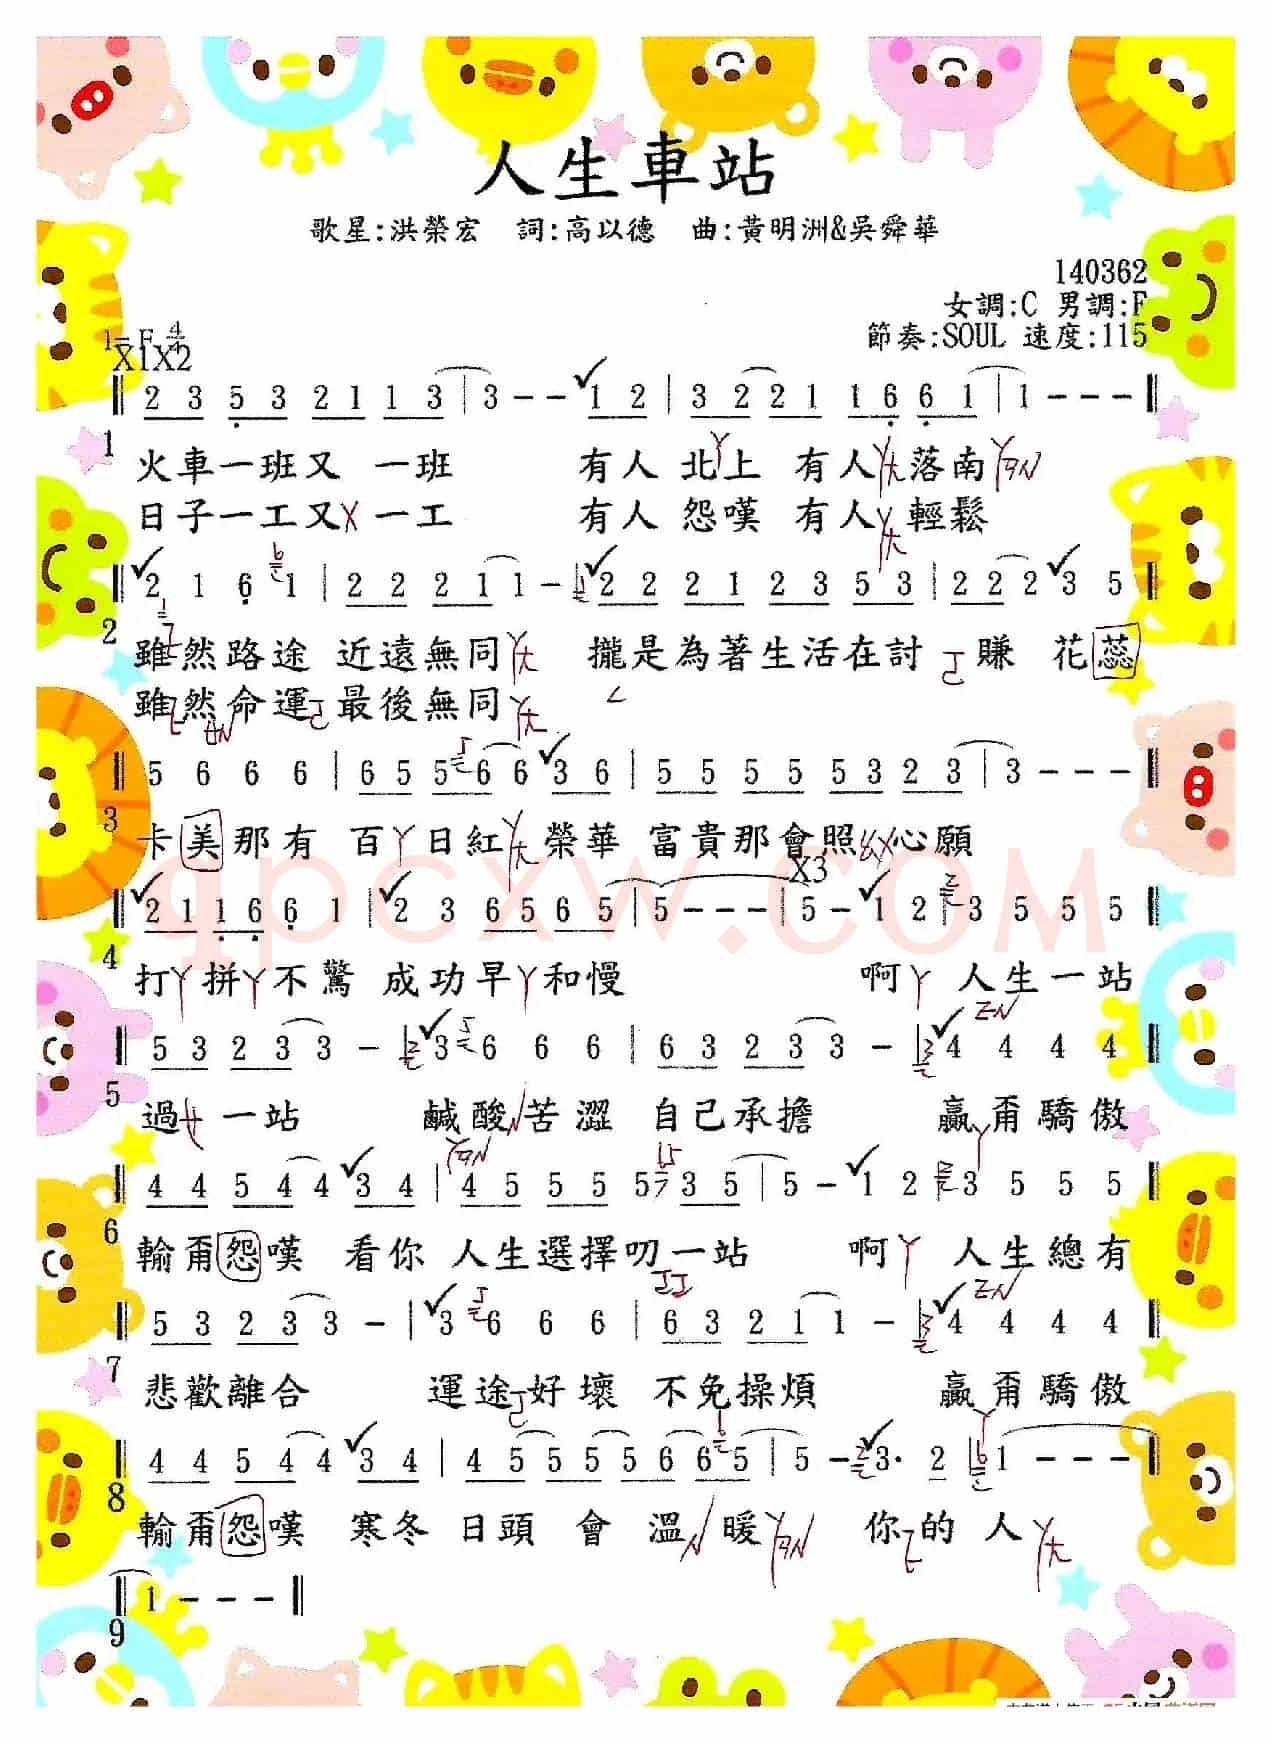 人生車站
歌星:洪榮宏 詞:高以德 曲:黃明洲&吳舜華
140362
女調:C 男調:F
1=F 4/4
節奏:SOUL 速度:115
X1X2
‖ 2 3 5 3 2 1 1 3 | 3 - - 1 2 | 3 2 2 1 1 6 6 1 | 1 - - - ‖
1
火車一班又 一班 有人 北上 有人 落南
日子一工又 一工 有人 怨嘆 有人 輕鬆
‖ 2 1 6 1 | 2 2 2 1 1 - | 2 2 2 1 2 3 5 3 | 2 2 2 3 5 ‖
2
雖然路途 近遠無同 攏是為著生活在討 賺 花蕊
雖然命運 最後無同
‖ 5 6 6 6 | 6 5 5 6 6 3 6 | 5 5 5 5 5 3 2 3 | 3 - - - ‖
3
卡美那有 百日紅 榮華 富貴那會照 心願
X3
‖ 2 1 1 6 6 1 | 2 3 6 5 6 5 | 5 - - - | 5 - 1 2 | 3 5 5 5 ‖
4
打拼不驚 成功早和慢 啊 人生一站
‖ 5 3 2 3 3 - | 3 6 6 6 | 6 3 2 3 3 - | 4 4 4 4 ‖
5
過一站 鹹酸苦澀 自己承擔 贏甭驕傲
‖ 4 4 5 4 4 3 4 | 4 5 5 5 5 3 5 | 5 - 1 2 | 3 5 5 5 ‖
6
輸甭怨嘆 看你 人生選擇叨一站 啊 人生總有
‖ 5 3 2 3 3 - | 3 6 6 6 | 6 3 2 1 1 - | 4 4 4 4 ‖
7
悲歡離合 運途好壞 不免操煩 贏甭驕傲
‖ 4 4 5 4 4 3 4 | 4 5 5 5 5 6 6 5 | 5 - 3· 2 | 1 - - - ‖
8
輸甭怨嘆 寒冬 日頭 會 溫暖 你的 人
‖ 1 - - - ‖
9
qpcxw.com